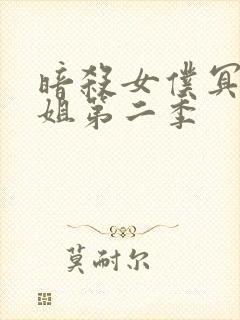 暗殺女僕冥
姐第二季
莫耐尔